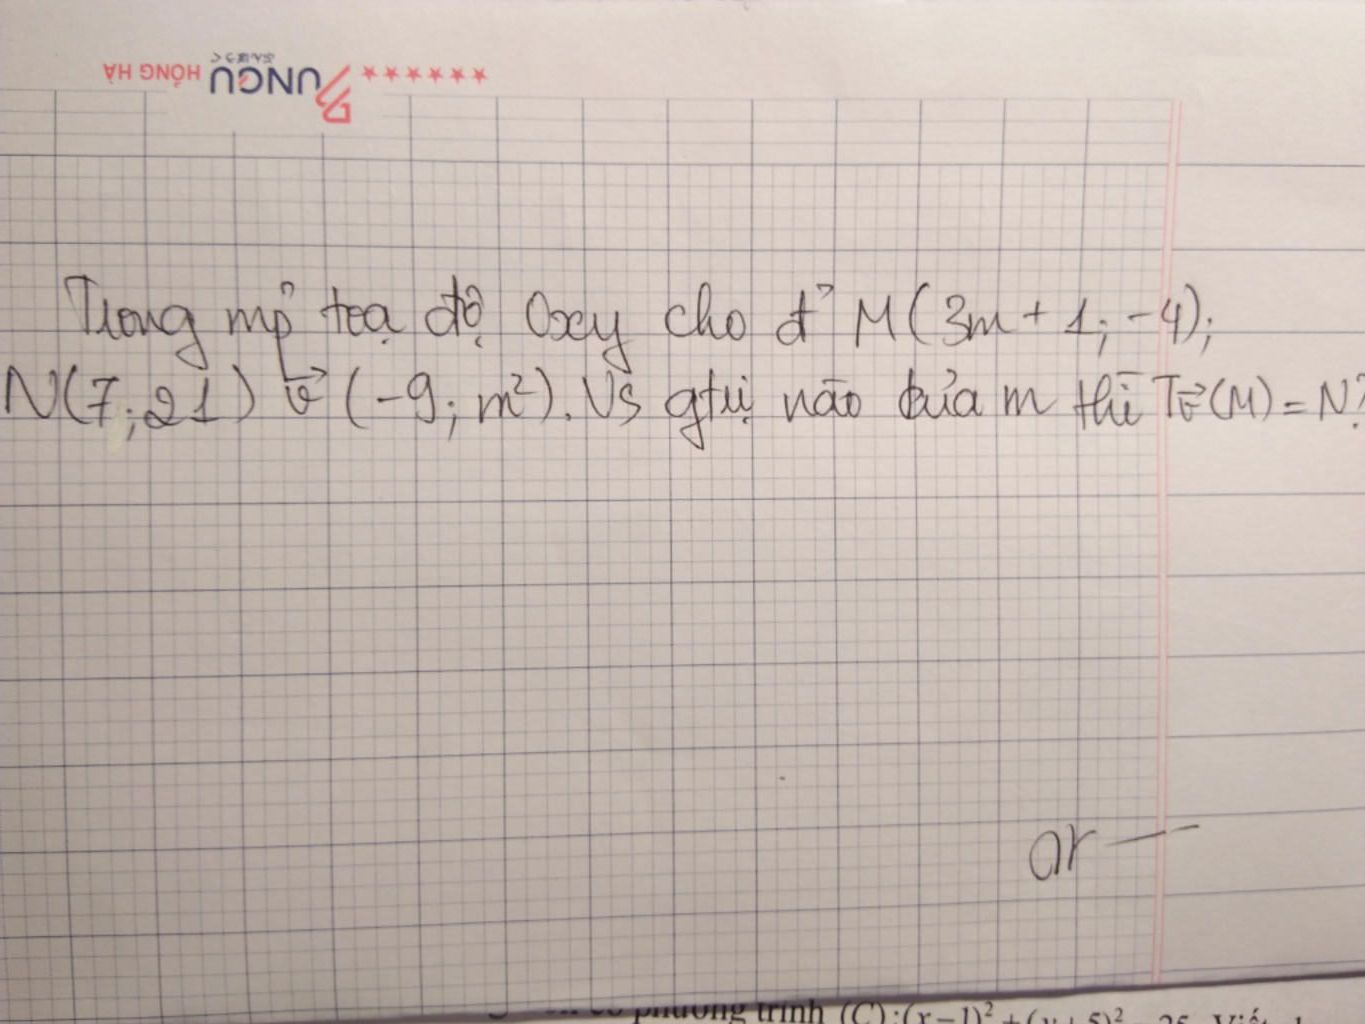 HỒNG HÀ
Trong mp toạ độ Oxy cho đ' M(3m + 1; -4);
N(7; 21) v⃗ (-9; m²). Vs gtrị nào của m thì Tv⃗(M) = N?
phương trình (C):(x−1)²+(y+5)²
25. Viết